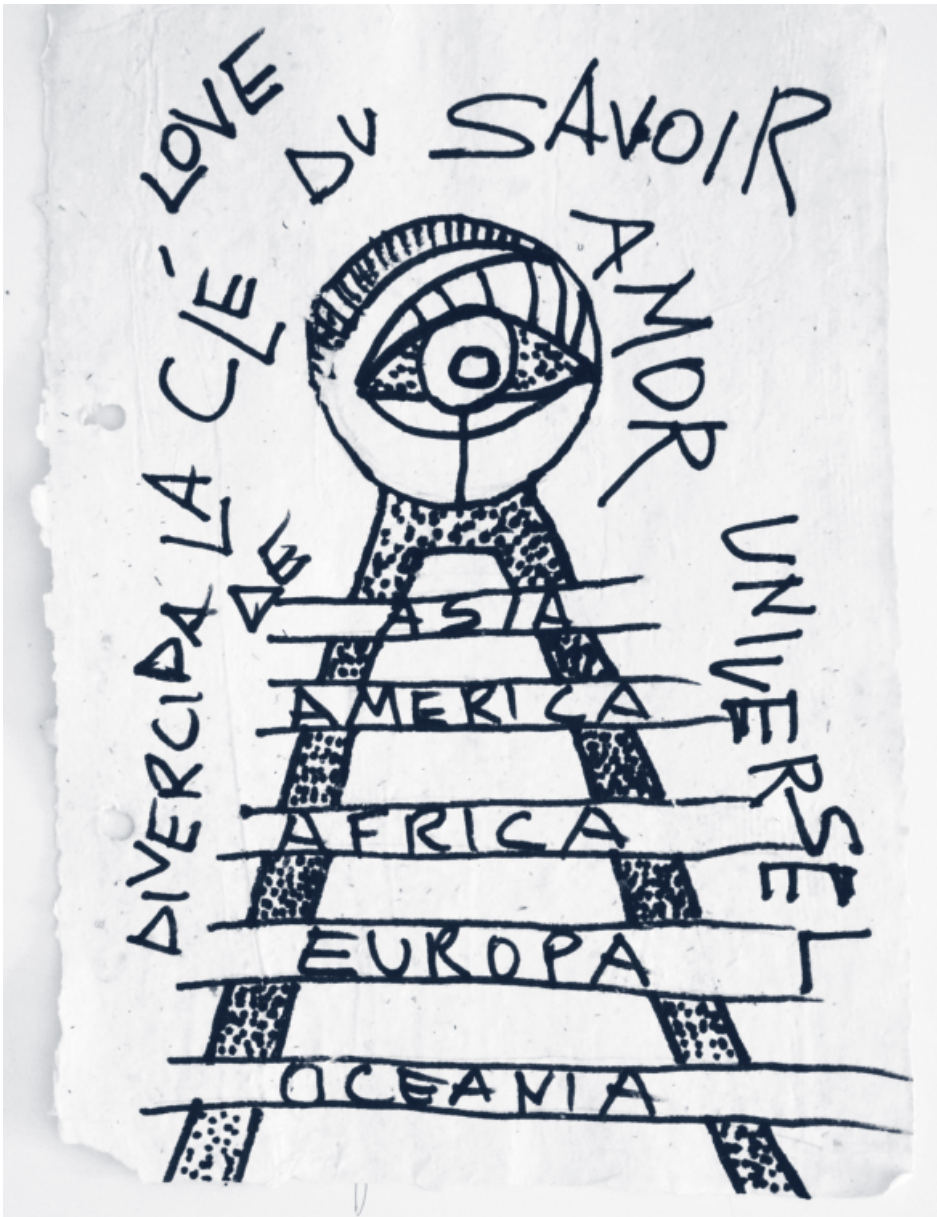 LOVE
DIVERCIDA
DE
LA CLÉ
DU SAVOIR
AMOR
UNIVERSEL
ASIA
AMERICA
AFRICA
EUROPA
OCEANIA